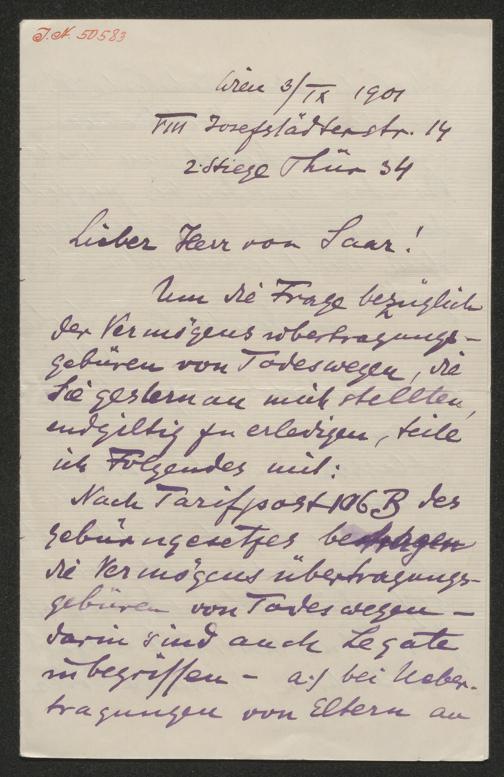 J.N. 50583
Wien 3/IX 1901
VIII Josefstädterstr. 14
2. Stiege Thür 34
Lieber Herr von Saar!
Um die Frage bezüglich
der Vermögensübertragungs-
gebüren von Todeswegen, die
Sie gestern an mich stellten,
endgiltig zu erledigen, teile
ich Folgendes mit:
Nach Tarifpost 106 B des
Gebürngesetzes betragen
die Vermögensübertragungs-
gebüren von Todeswegen –
darin sind auch Legate
inbegriffen – a.) bei Ueber-
tragungen von Eltern an